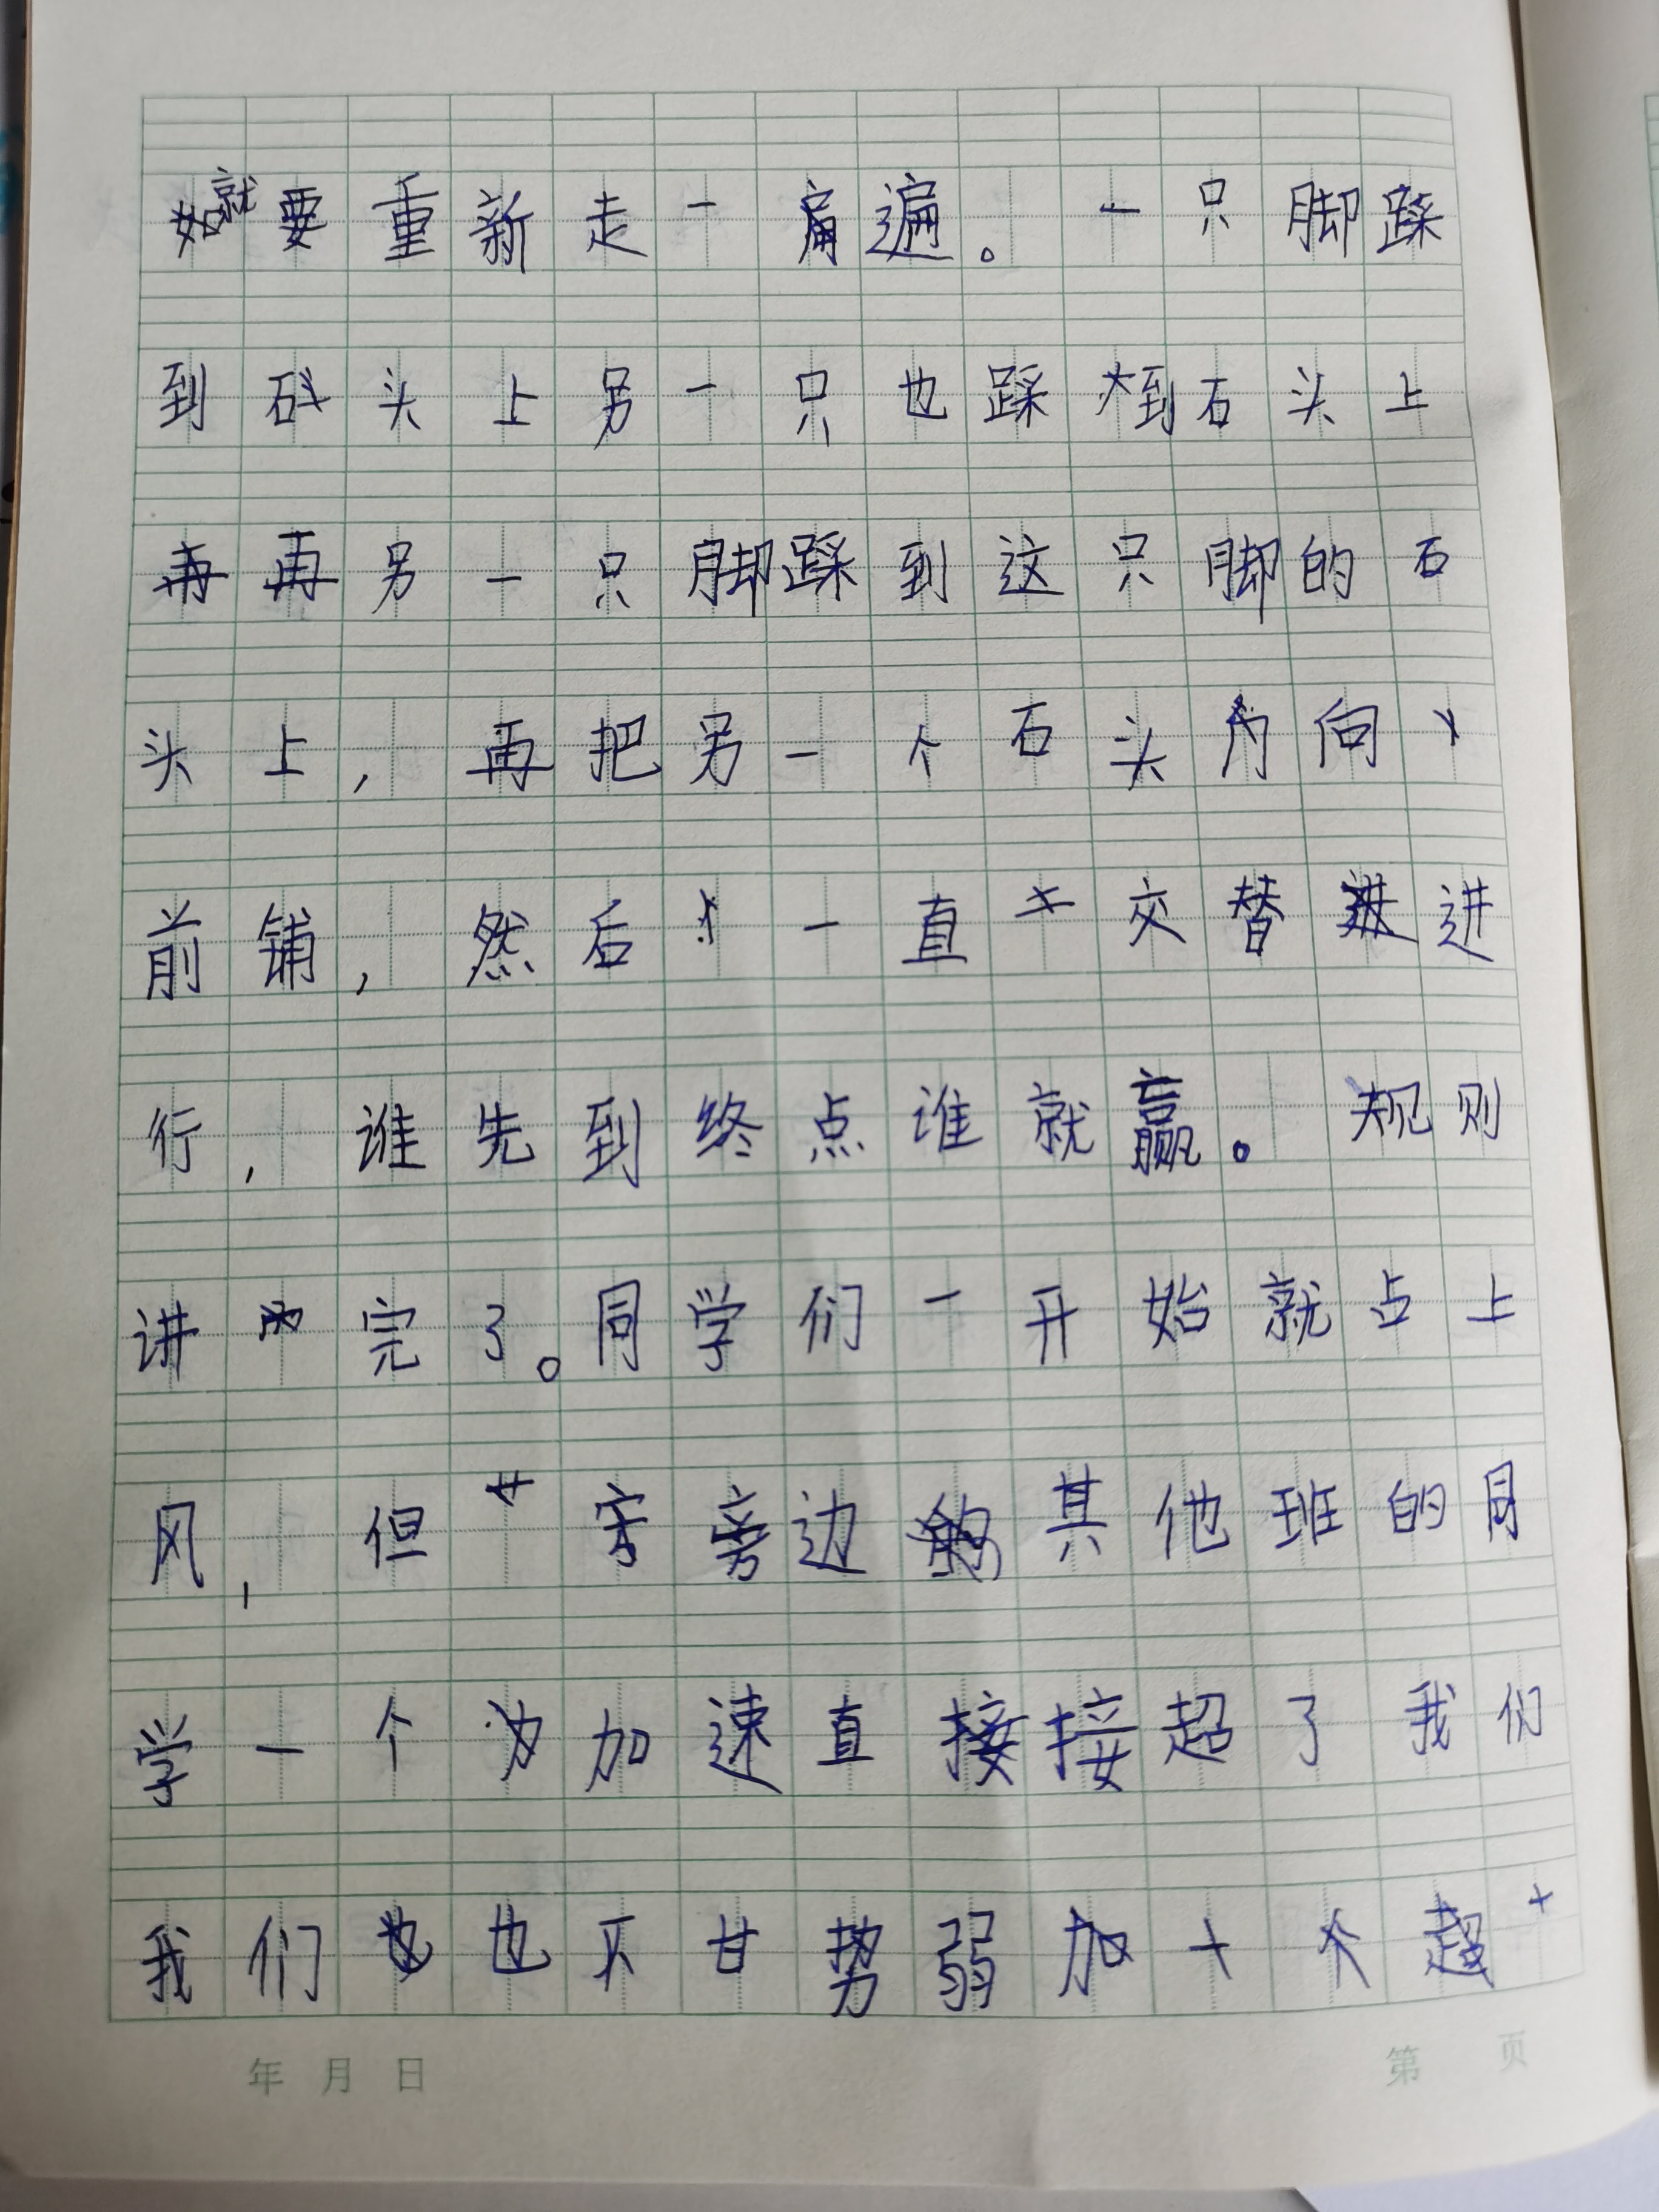 就要重新走一遍。一只脚踩
到石头上另一只也踩到石头上
再另一只脚踩到这只脚的石
头上,再把另一个石头向
前铺,然后一直交替进
行,谁先到终点谁就赢。规则
讲完了。同学们一开始就占上
风,但旁边其他班的同
学一个加速直接超了我们
我们也不甘势弱加
年 月 日
第 页